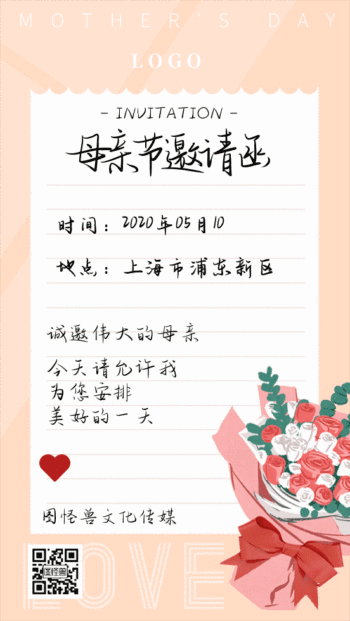 MOTHER'S DAY
LOGO
- INVITATION -
母亲节邀请函
时间：2020年05月10
地点：上海市浦东新区
诚邀伟大的母亲
今天请允许我
为您安排
美好的一天
图怪兽文化传媒
图怪兽
LOVE